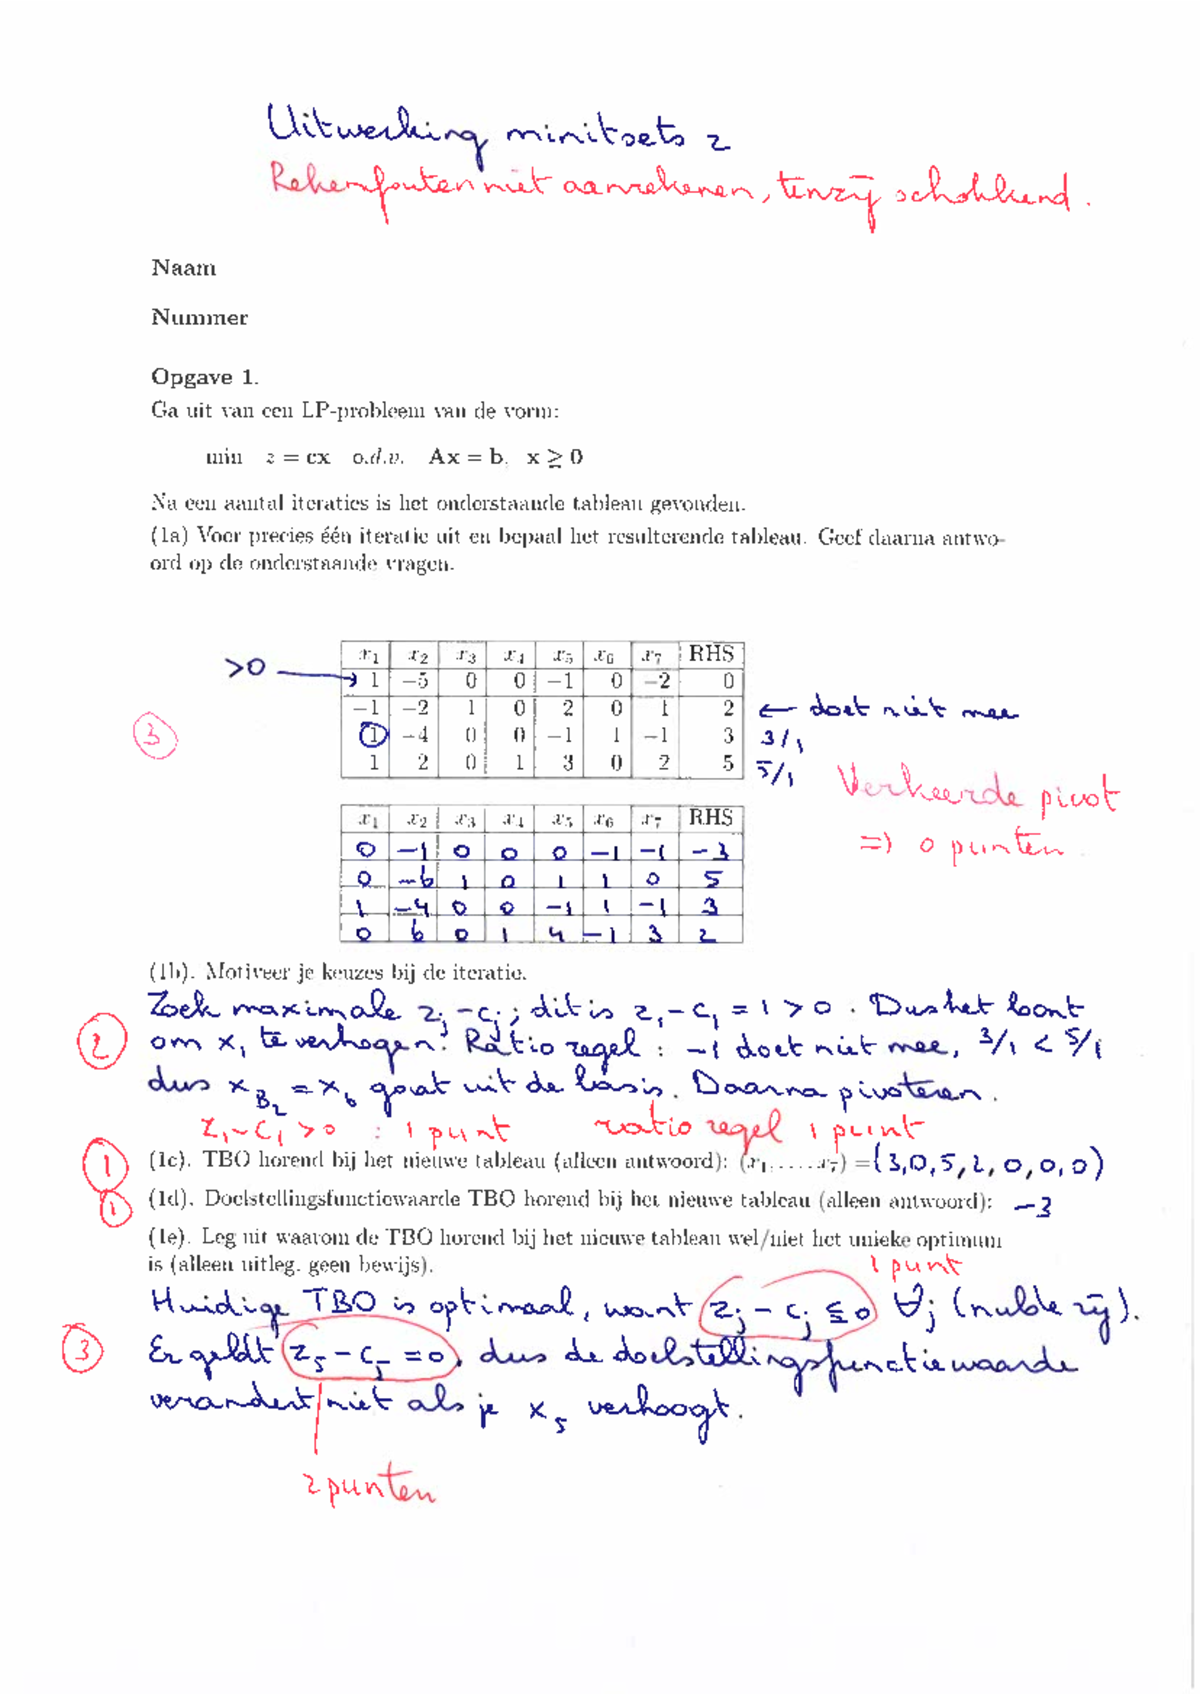 Uitwerking minitsets 2
Rekenfouten niet aanrekenen, tenzij schokkend.
Naam
Nummer
Opgave 1.
Ga uit van een LP-probleem van de vorm:
min z = cx o.d.v. Ax = b, x ≥ 0
Na een aantal iteraties is het onderstaande tableau gevonden.
(1a) Voer precies één iteratie uit en bepaal het resulterende tableau. Geef daarna antwo-
ord op de onderstaande vragen.
x1 x2 x3 x4 x5 x6 x7 RHS
>0 → 1 −5 0 0 −1 0 −2 0
−1 −2 1 0 2 0 1 2 ← doet niet mee
3 1 −4 0 0 −1 1 −1 3 3/1
1 2 0 1 3 0 2 5 5/1
Verkeerde pivot
=> 0 punten
x1 x2 x3 x4 x5 x6 x7 RHS
0 −1 0 0 0 −1 −1 −3
0 −6 1 0 1 1 0 5
1 −4 0 0 −1 1 −1 3
0 6 0 1 4 −1 3 2
(1b). Motiveer je keuzes bij de iteratie.
Zoek maximale zj − cj; dit is z1 − c1 = 1 > 0. Dus het loont
2 om x1 te verhogen. Ratio regel: −1 doet niet mee, 3/1 < 5/1
dus xB2 = x6 gaat uit de basis. Daarna pivoteren.
z1 − c1 > 0 : 1 punt ratio regel 1 punt
1 (1c). TBO horend bij het nieuwe tableau (alleen antwoord): (x1, . . . , x7) = (3,0,5,2,0,0,0)
1 (1d). Doelstellingsfunctiewaarde TBO horend bij het nieuwe tableau (alleen antwoord): −3
(1e). Leg uit waarom de TBO horend bij het nieuwe tableau wel/niet het unieke optimum
is (alleen uitleg, geen bewijs).
1 punt
Huidige TBO is optimaal, want zj − cj ≤ 0 ∀j (nulde rij).
3 Er geldt z5 − c5 = 0, dus de doelstellingsfunctiewaarde
verandert niet als je x5 verhoogt.
2 punten